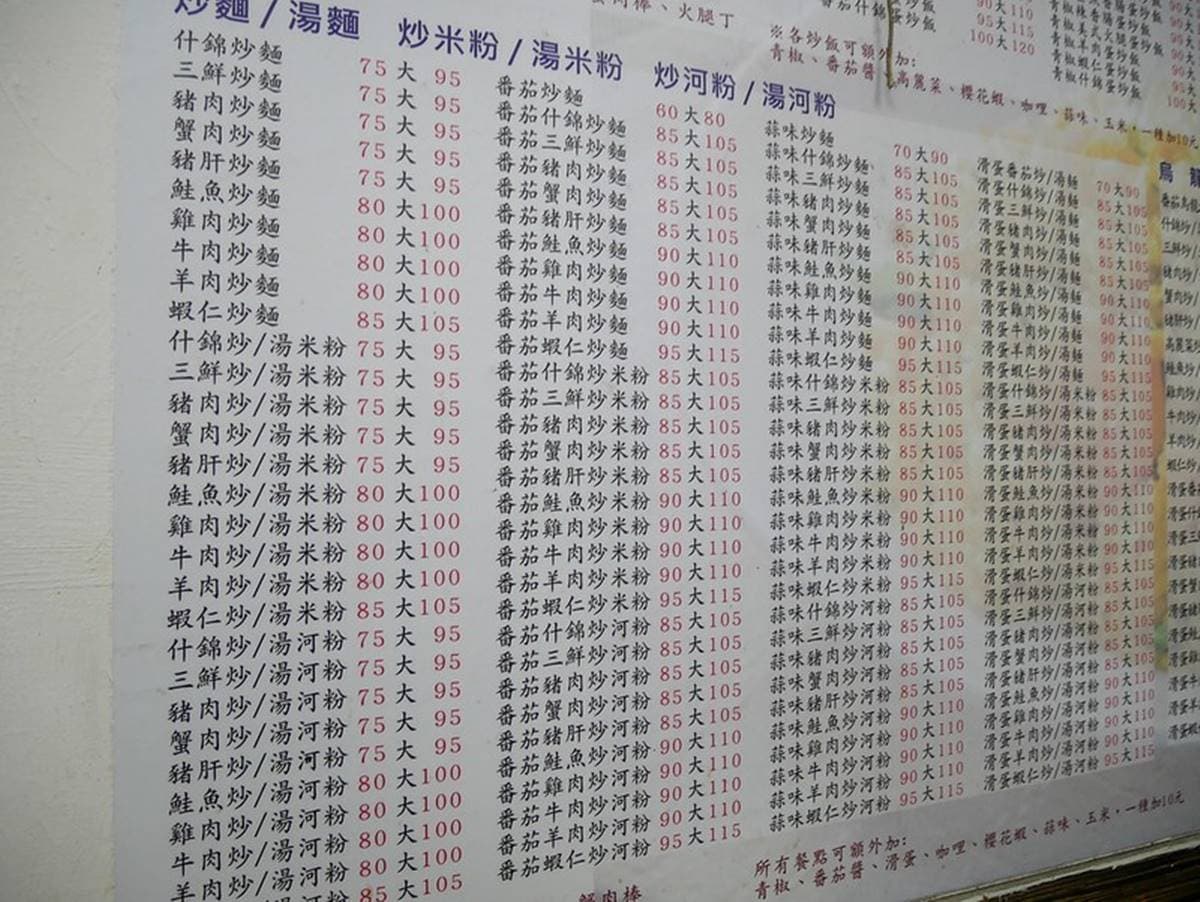 蟹肉棒、火腿丁
※各炒飯可額外加:
青椒、番茄醬、高麗菜、櫻花蝦、咖哩、蒜味、玉米,一種加10元
炒麵/湯麵 炒米粉/湯米粉 炒河粉/湯河粉
什錦炒麵 75大 95
三鮮炒麵 75大 95
豬肉炒麵 75大 95
蟹肉炒麵 75大 95
豬肝炒麵 75大 95
鮭魚炒麵 80大100
雞肉炒麵 80大100
牛肉炒麵 80大100
羊肉炒麵 80大100
蝦仁炒麵 85大105
什錦炒/湯米粉 75大 95
三鮮炒/湯米粉 75大 95
豬肉炒/湯米粉 75大 95
蟹肉炒/湯米粉 75大 95
豬肝炒/湯米粉 75大 95
鮭魚炒/湯米粉 80大100
雞肉炒/湯米粉 80大100
牛肉炒/湯米粉 80大100
羊肉炒/湯米粉 80大100
蝦仁炒/湯米粉 85大105
什錦炒/湯河粉 75大 95
三鮮炒/湯河粉 75大 95
豬肉炒/湯河粉 75大 95
蟹肉炒/湯河粉 75大 95
豬肝炒/湯河粉 75大 95
鮭魚炒/湯河粉 80大100
雞肉炒/湯河粉 80大100
牛肉炒/湯河粉 80大100
羊肉炒/湯河粉 80大100
85大105
番茄炒麵 60大80
番茄什錦炒麵 85大105
番茄三鮮炒麵 85大105
番茄豬肉炒麵 85大105
番茄蟹肉炒麵 85大105
番茄豬肝炒麵 85大105
番茄鮭魚炒麵 90大110
番茄雞肉炒麵 90大110
番茄牛肉炒麵 90大110
番茄羊肉炒麵 90大110
番茄蝦仁炒麵 95大115
番茄什錦炒米粉 85大105
番茄三鮮炒米粉 85大105
番茄豬肉炒米粉 85大105
番茄蟹肉炒米粉 85大105
番茄豬肝炒米粉 85大105
番茄鮭魚炒米粉 90大110
番茄雞肉炒米粉 90大110
番茄牛肉炒米粉 90大110
番茄羊肉炒米粉 90大110
番茄蝦仁炒米粉 95大115
番茄什錦炒河粉 85大105
番茄三鮮炒河粉 85大105
番茄豬肉炒河粉 85大105
番茄蟹肉炒河粉 85大105
番茄豬肝炒河粉 85大105
番茄鮭魚炒河粉 90大110
番茄雞肉炒河粉 90大110
番茄牛肉炒河粉 90大110
番茄羊肉炒河粉 90大110
番茄蝦仁炒河粉 95大115
蒜味炒麵 70大90
蒜味什錦炒麵 85大105
蒜味三鮮炒麵 85大105
蒜味豬肉炒麵 85大105
蒜味蟹肉炒麵 85大105
蒜味豬肝炒麵 85大105
蒜味鮭魚炒麵 90大110
蒜味雞肉炒麵 90大110
蒜味牛肉炒麵 90大110
蒜味羊肉炒麵 90大110
蒜味蝦仁炒麵 95大115
蒜味什錦炒米粉 85大105
蒜味三鮮炒米粉 85大105
蒜味豬肉炒米粉 85大105
蒜味蟹肉炒米粉 85大105
蒜味豬肝炒米粉 85大105
蒜味鮭魚炒米粉 90大110
蒜味雞肉炒米粉 90大110
蒜味牛肉炒米粉 90大110
蒜味羊肉炒米粉 90大110
蒜味蝦仁炒米粉 95大115
蒜味什錦炒河粉 85大105
蒜味三鮮炒河粉 85大105
蒜味豬肉炒河粉 85大105
蒜味蟹肉炒河粉 85大105
蒜味豬肝炒河粉 85大105
蒜味鮭魚炒河粉 90大110
蒜味雞肉炒河粉 90大110
蒜味牛肉炒河粉 90大110
蒜味羊肉炒河粉 90大110
蒜味蝦仁炒河粉 95大115
滑蛋番茄炒/湯麵 70大90
滑蛋什錦炒/湯麵 85大105
滑蛋三鮮炒/湯麵 85大105
滑蛋豬肉炒/湯麵 85大105
滑蛋蟹肉炒/湯麵 85大105
滑蛋豬肝炒/湯麵 85大105
滑蛋鮭魚炒/湯麵 90大110
滑蛋雞肉炒/湯麵 90大110
滑蛋牛肉炒/湯麵 90大110
滑蛋羊肉炒/湯麵 90大110
滑蛋蝦仁炒/湯麵 95大115
滑蛋什錦炒/湯米粉 85大105
滑蛋三鮮炒/湯米粉 85大105
滑蛋豬肉炒/湯米粉 85大105
滑蛋蟹肉炒/湯米粉 85大105
滑蛋豬肝炒/湯米粉 85大105
滑蛋鮭魚炒/湯米粉 90大110
滑蛋雞肉炒/湯米粉 90大110
滑蛋牛肉炒/湯米粉 90大110
滑蛋羊肉炒/湯米粉 90大110
滑蛋蝦仁炒/湯米粉 95大115
滑蛋什錦炒/湯河粉 85大105
滑蛋三鮮炒/湯河粉 85大105
滑蛋豬肉炒/湯河粉 85大105
滑蛋蟹肉炒/湯河粉 85大105
滑蛋豬肝炒/湯河粉 85大105
滑蛋鮭魚炒/湯河粉 90大110
滑蛋雞肉炒/湯河粉 90大110
滑蛋牛肉炒/湯河粉 90大110
滑蛋羊肉炒/湯河粉 90大110
滑蛋蝦仁炒/湯河粉 95大115
所有餐點可額外加:
青椒、番茄醬、滑蛋、咖哩、櫻花蝦、蒜味、玉米,一種加10元
蟹肉棒